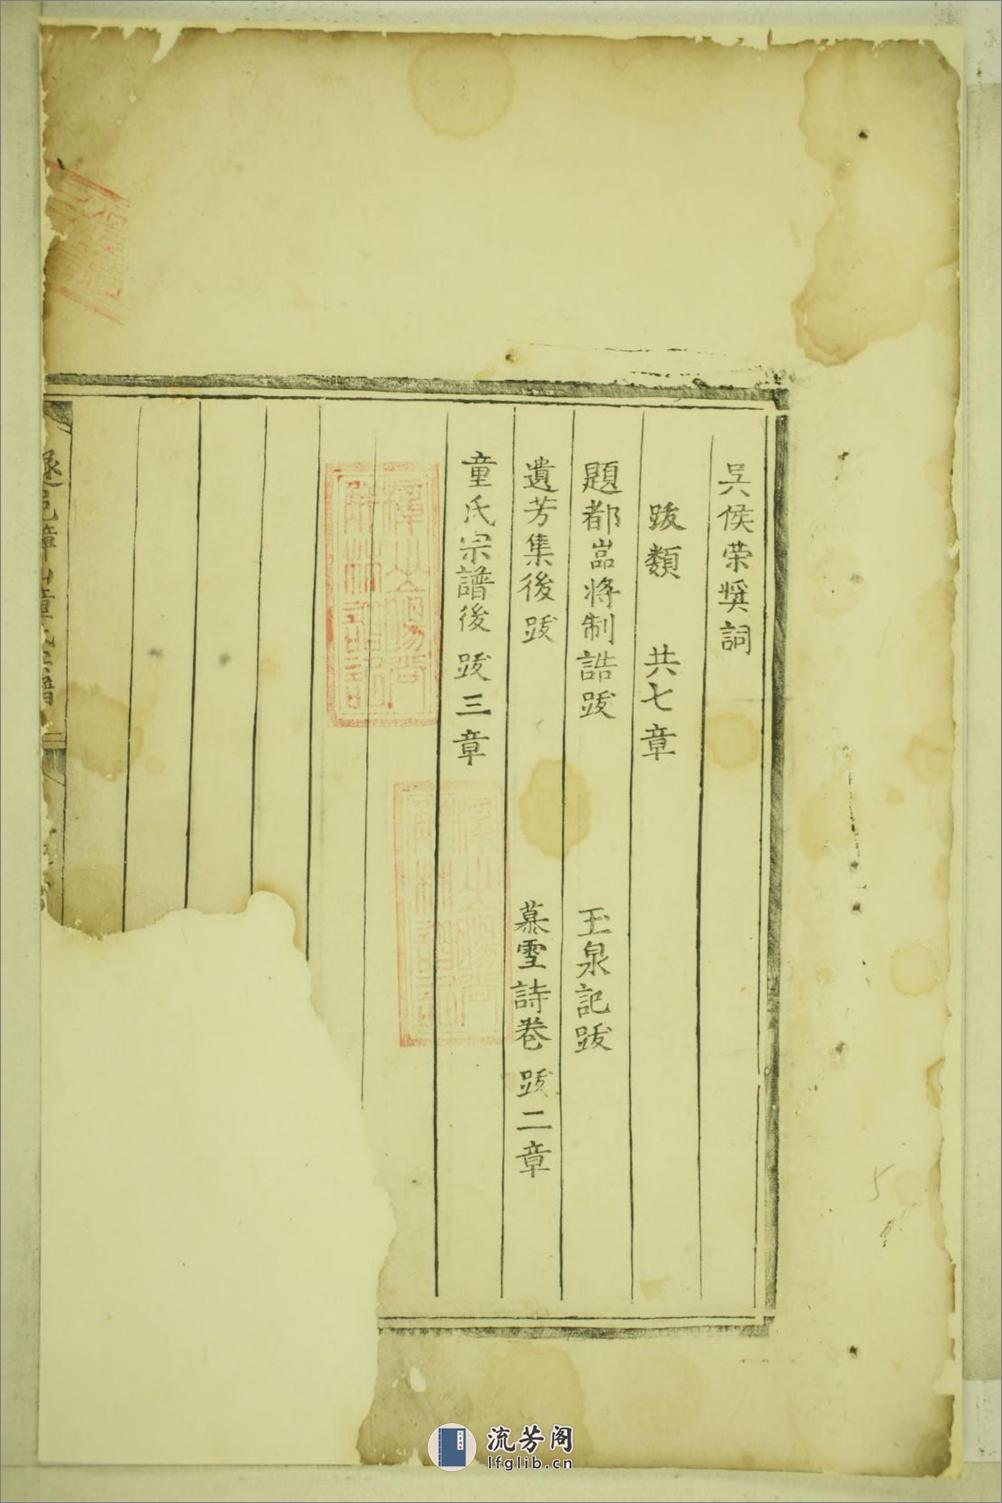 吳侯荣奨詞
跋類 共七章
題都啚将制誥跋 玉泉記跋
遺芳集後跋 慕雪詩卷跋二章
童氏宗譜後跋三章
遂邑
流芳阁
lfglib.cn